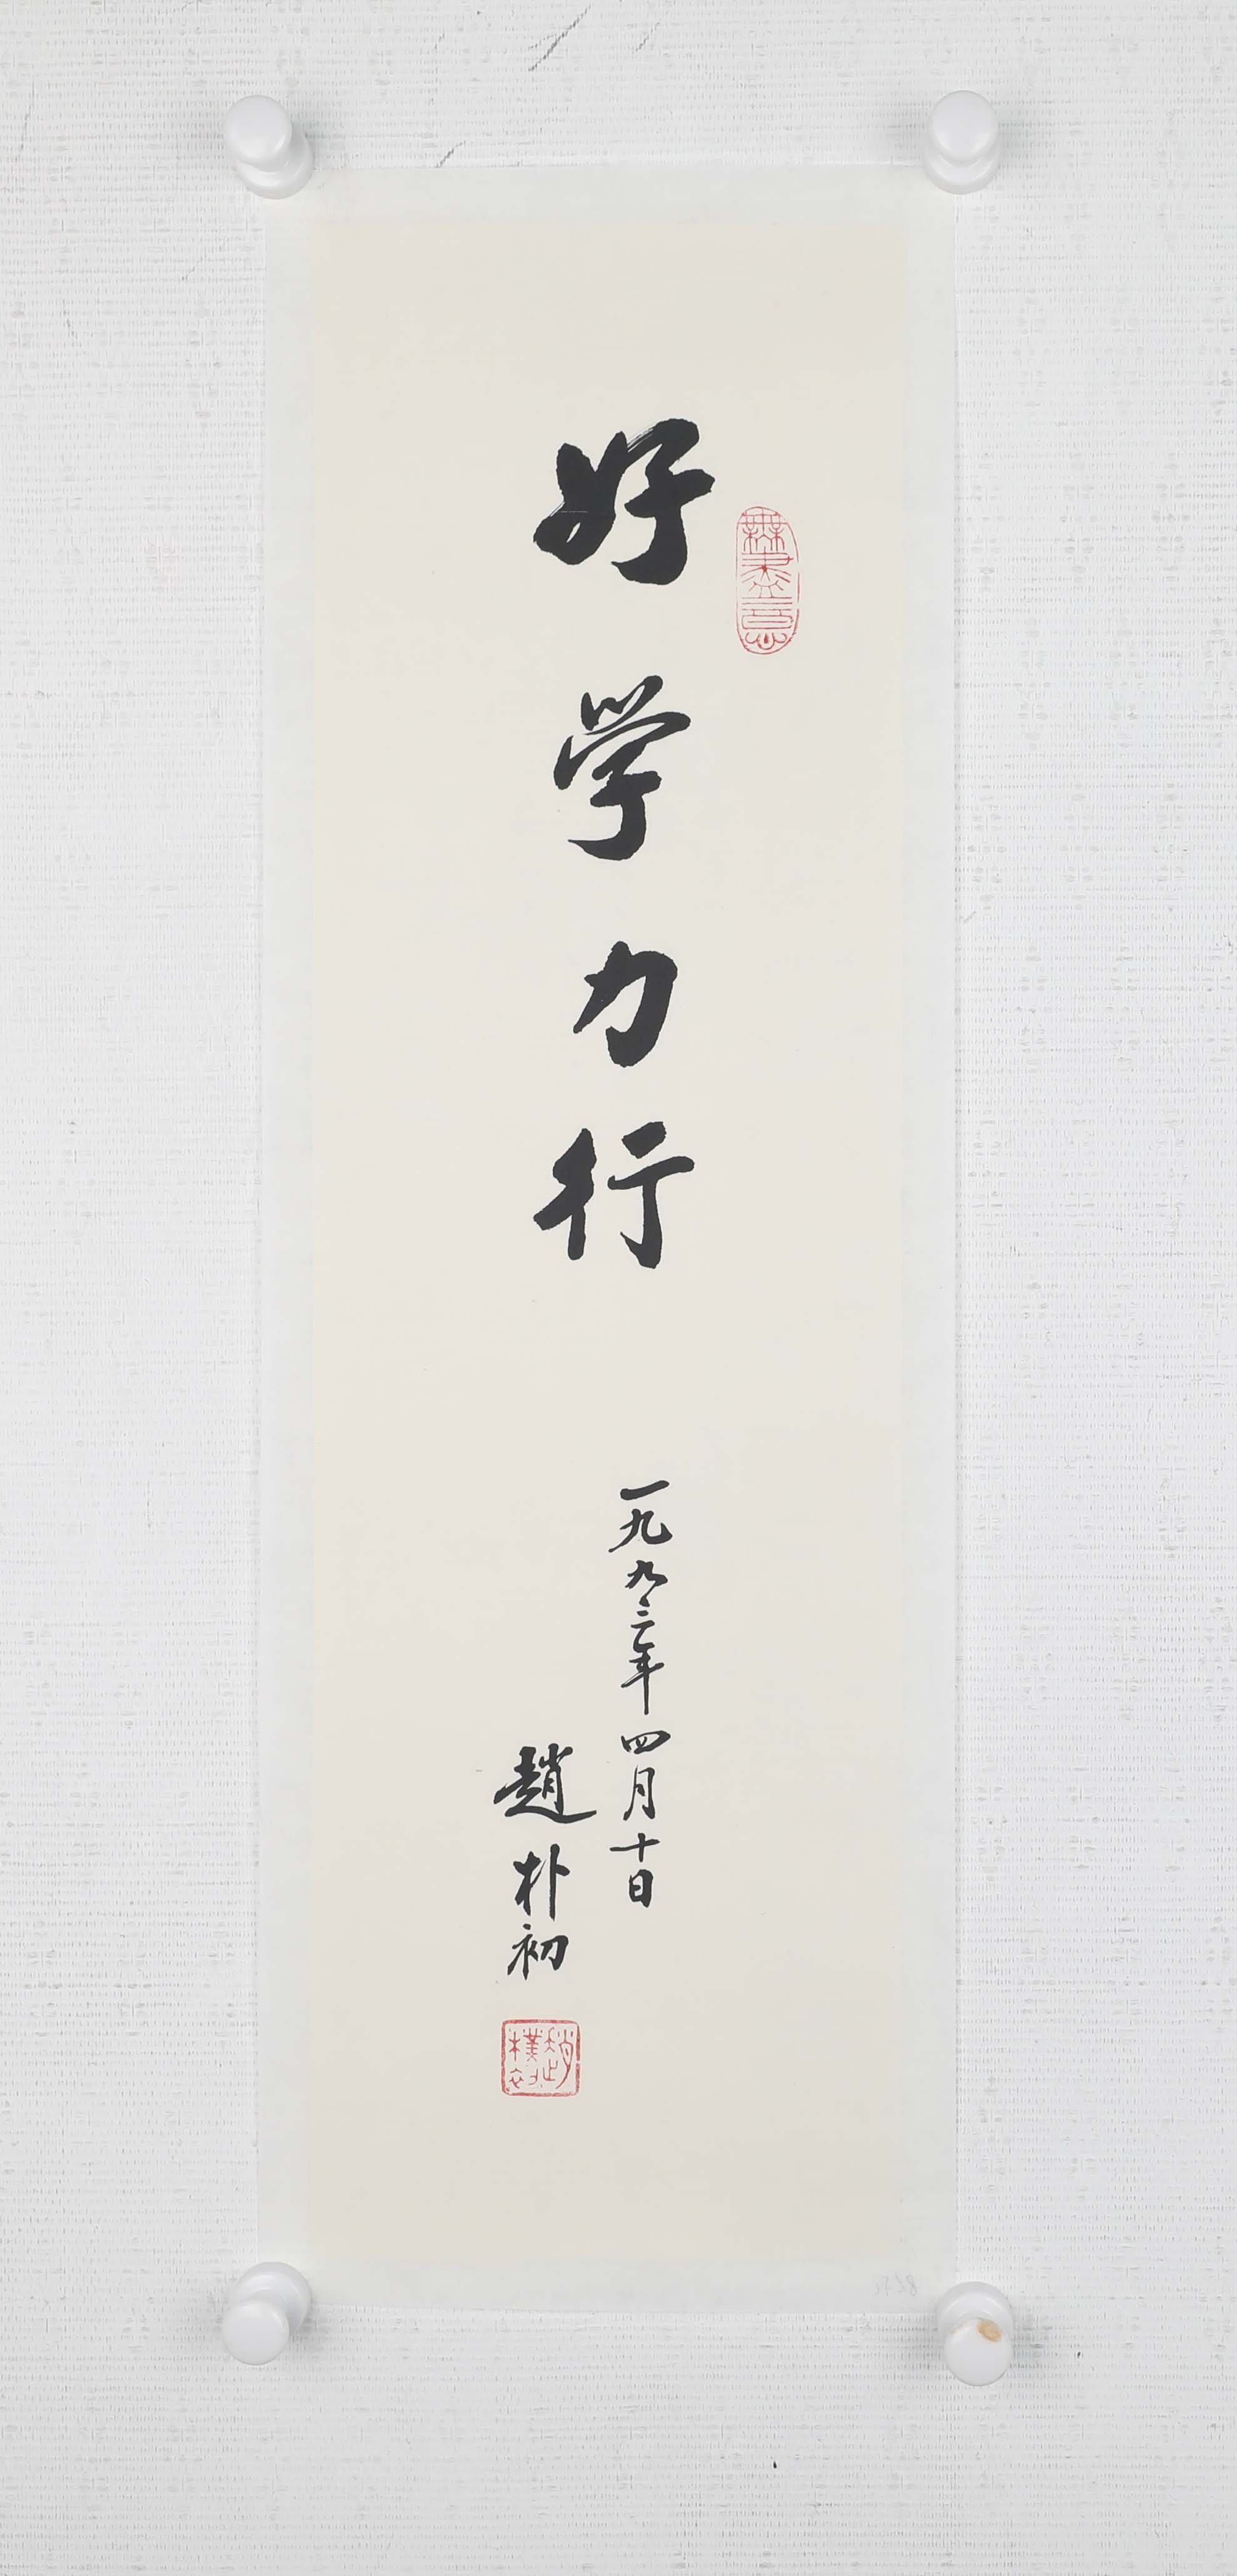 好学力行
一九九三年四月十日
趙朴初
無盡意
趙樸初